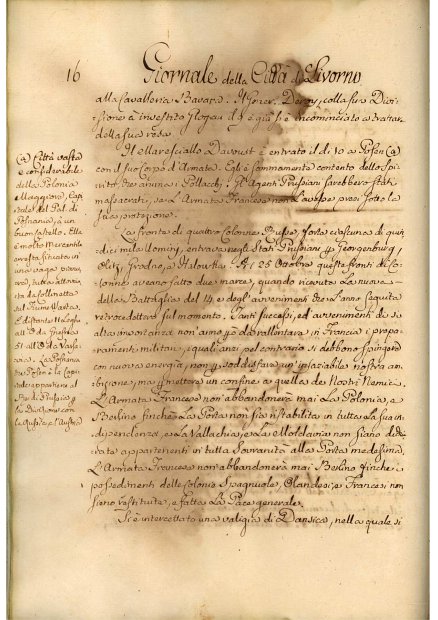 16
Giornale della Città di Livorno
alla Cavalleria Bavara. Il Gener. Deroy, colla sua Divi-
sione à investito Glogau, e già si è incominciato a trattar
della sua resa.
Il Maresciallo Davoust è entrato il dì 10 a Posen (a)
con il suo Corpo d'Armata. Egli è sommamente contento dello Spi-
rito, che anima i Pollacchi; Gl'Agenti Prussiani sarebbero stati
massacrati, se L'Armata Francese non L'avesse presi sotto la
sua protezione.
La fronte di quattro Colonne Russe, forte ciascuna di quin-
dici mila Uomini, entrava negli Stati Prussiani per Georgenburg
Olitz, Grodno, e Jalowka. Il 25 Ottobre queste fronti di Co-
lonne aveano fatto due marce, quando ricevuta La nuova
della Battaglia del 14 e degl'avvenimenti che L'anno seguita
retrocedettero sul momento. Tanti successi, ed avvenimenti di sì
alta importanza non anno da rallentare in Francia i prepa-
ramenti militari, i quali anzi pel contrario si debbono spingere
con nuova energia, non per soddisfare un'insaziabile nostra am-
bizione; ma per mettere un confine a quella dei Nostri Nemici.
L'Armata Francese non abbandonerà mai La Polonia, e
Berlino finchè La Porta non sia ristabilita in tutta La sua in-
dipendenza, e La Vallachia, e La Moldavia non siano dichia-
rate appartenenti in tutta Sovranità alla Porta medesima.
L'Armata Francese non abbandonerà mai Berlino finchè i
possedimenti delle Colonie Spagnuole, Olandesi, e Francesi non
sieno restituite, e fatta La Pace generale.
Si è intercettato una valigia di Dansica, nella quale si
(a) Città vasta
e considerabile
della Polonia
Maggiore, Capi-
tale del Pal. di
Posnania, à un
buon Castello. Ella
è molto Mercantile
e resta situata in
una vaga pianu-
ra, tutta attornia-
ta da Collinette
sul Fiume Varta,
E distante 11 Leghe
all'O. da Gnesna
51 all'O. da Varsa-
via. La Posnania